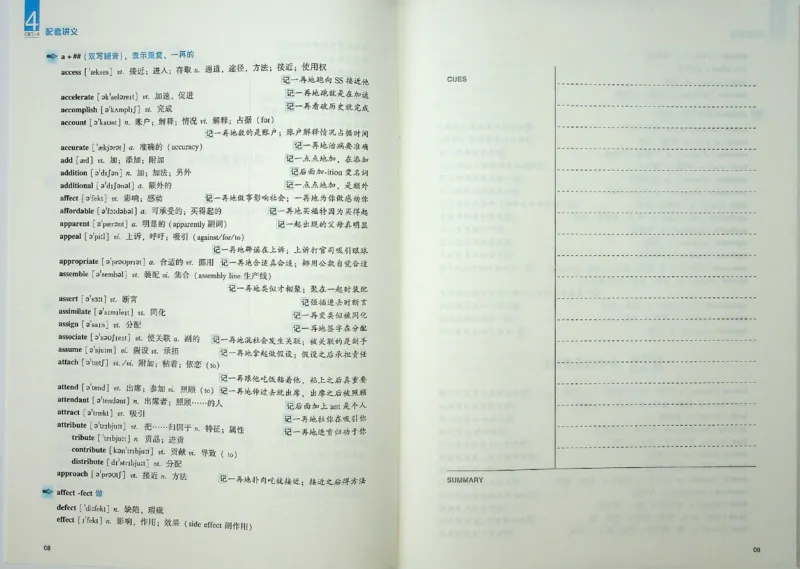 4
CET-4
配套讲义
a + ## (双写辅音)，表示重复、一再的
access [ˈækses] vt. 接近；进入；存取 n. 通道，途径，方法；接近；使用权
记一再地跑向 SS 接近他
accelerate [əkˈseləreɪt] vt. 加速，促进 记一再地跑就是在加速
accomplish [əˈkʌmplɪʃ] vt. 完成 记一再看破历史就完成
account [əˈkaʊnt] n. 账户；解释；情况 vi. 解释；占据 (for)
记一再地数的是账户；账户解释情况占据时间
accurate [ˈækjərət] a. 准确的 (accuracy) 记一再地治病要准确
add [æd] vt. 加；添加；附加 记一点点地加，在添加
addition [əˈdɪʃən] n. 加；加法；另外 记后面加-ition 变名词
additional [əˈdɪʃənəl] a. 额外的 记一点点地加，是额外
affect [əˈfekt] vt. 影响；感动 记一再地做事影响社会；一再地为你做感动你
affordable [əˈfɔːdəbəl] a. 可承受的；买得起的 记一再地买福特因为买得起
apparent [əˈpærənt] a. 明显的 (apparently 副词) 记一起出现的父母真明显
appeal [əˈpiːl] vi. 上诉，呼吁；吸引 (against/for/to)
记一再地辩论在上诉；上诉打官司吸引眼球
appropriate [əˈprəʊprɪət] a. 合适的 vt. 挪用 记一再地合适真合适；挪用公款自觉合适
assemble [əˈsembəl] vt. 装配 vi. 集合 (assembly line 生产线)
记一再地类似才相聚；聚在一起时装配
assert [əˈsɜːt] vt. 断言 记强插进去时断言
assimilate [əˈsɪmɪleɪt] vt. 同化 记一再变类似被同化
assign [əˈsaɪn] vt. 分配 记一再地签字在分配
associate [əˈsəʊʃɪeɪt] vt. 使关联 a. 副的 记一再地混社会发生关联；被关联的是副手
assume [əˈsjuːm] vt. 假设 vt. 承担 记一再地拿起做假设；假设之后承担责任
attach [əˈtætʃ] vt. /vi. 附加；粘着；依恋 (to)
记一再跟他吃饭黏着他，粘上之后真重要
attend [əˈtend] vt. 出席；参加 vi. 照顾 (to) 记一再地伸过去就出席，出席之后被照顾
attendant [əˈtendənt] n. 出席者；照顾……的人 记后面加上 ant 是个人
attract [əˈtrækt] vt. 吸引 记一再地拉你在吸引你
attribute [əˈtrɪbjuːt] vt. 把……归因于 n. 特征；属性 记一再地进贡归功于你
tribute [ˈtrɪbjuːt] n. 贡品；进贡
contribute [kənˈtrɪbjuːt] vt. 贡献 vi. 导致 (to)
distribute [dɪˈstrɪbjuːt] vt. 分配
approach [əˈprəʊtʃ] vt. 接近 n. 方法 记一再地扑肉吃就接近；接近之后得方法
affect -fect 做
defect [ˈdiːfekt] n. 缺陷，瑕疵
effect [ɪˈfekt] n. 影响，作用；效果 (side effect 副作用)
08
CUES
SUMMARY
09